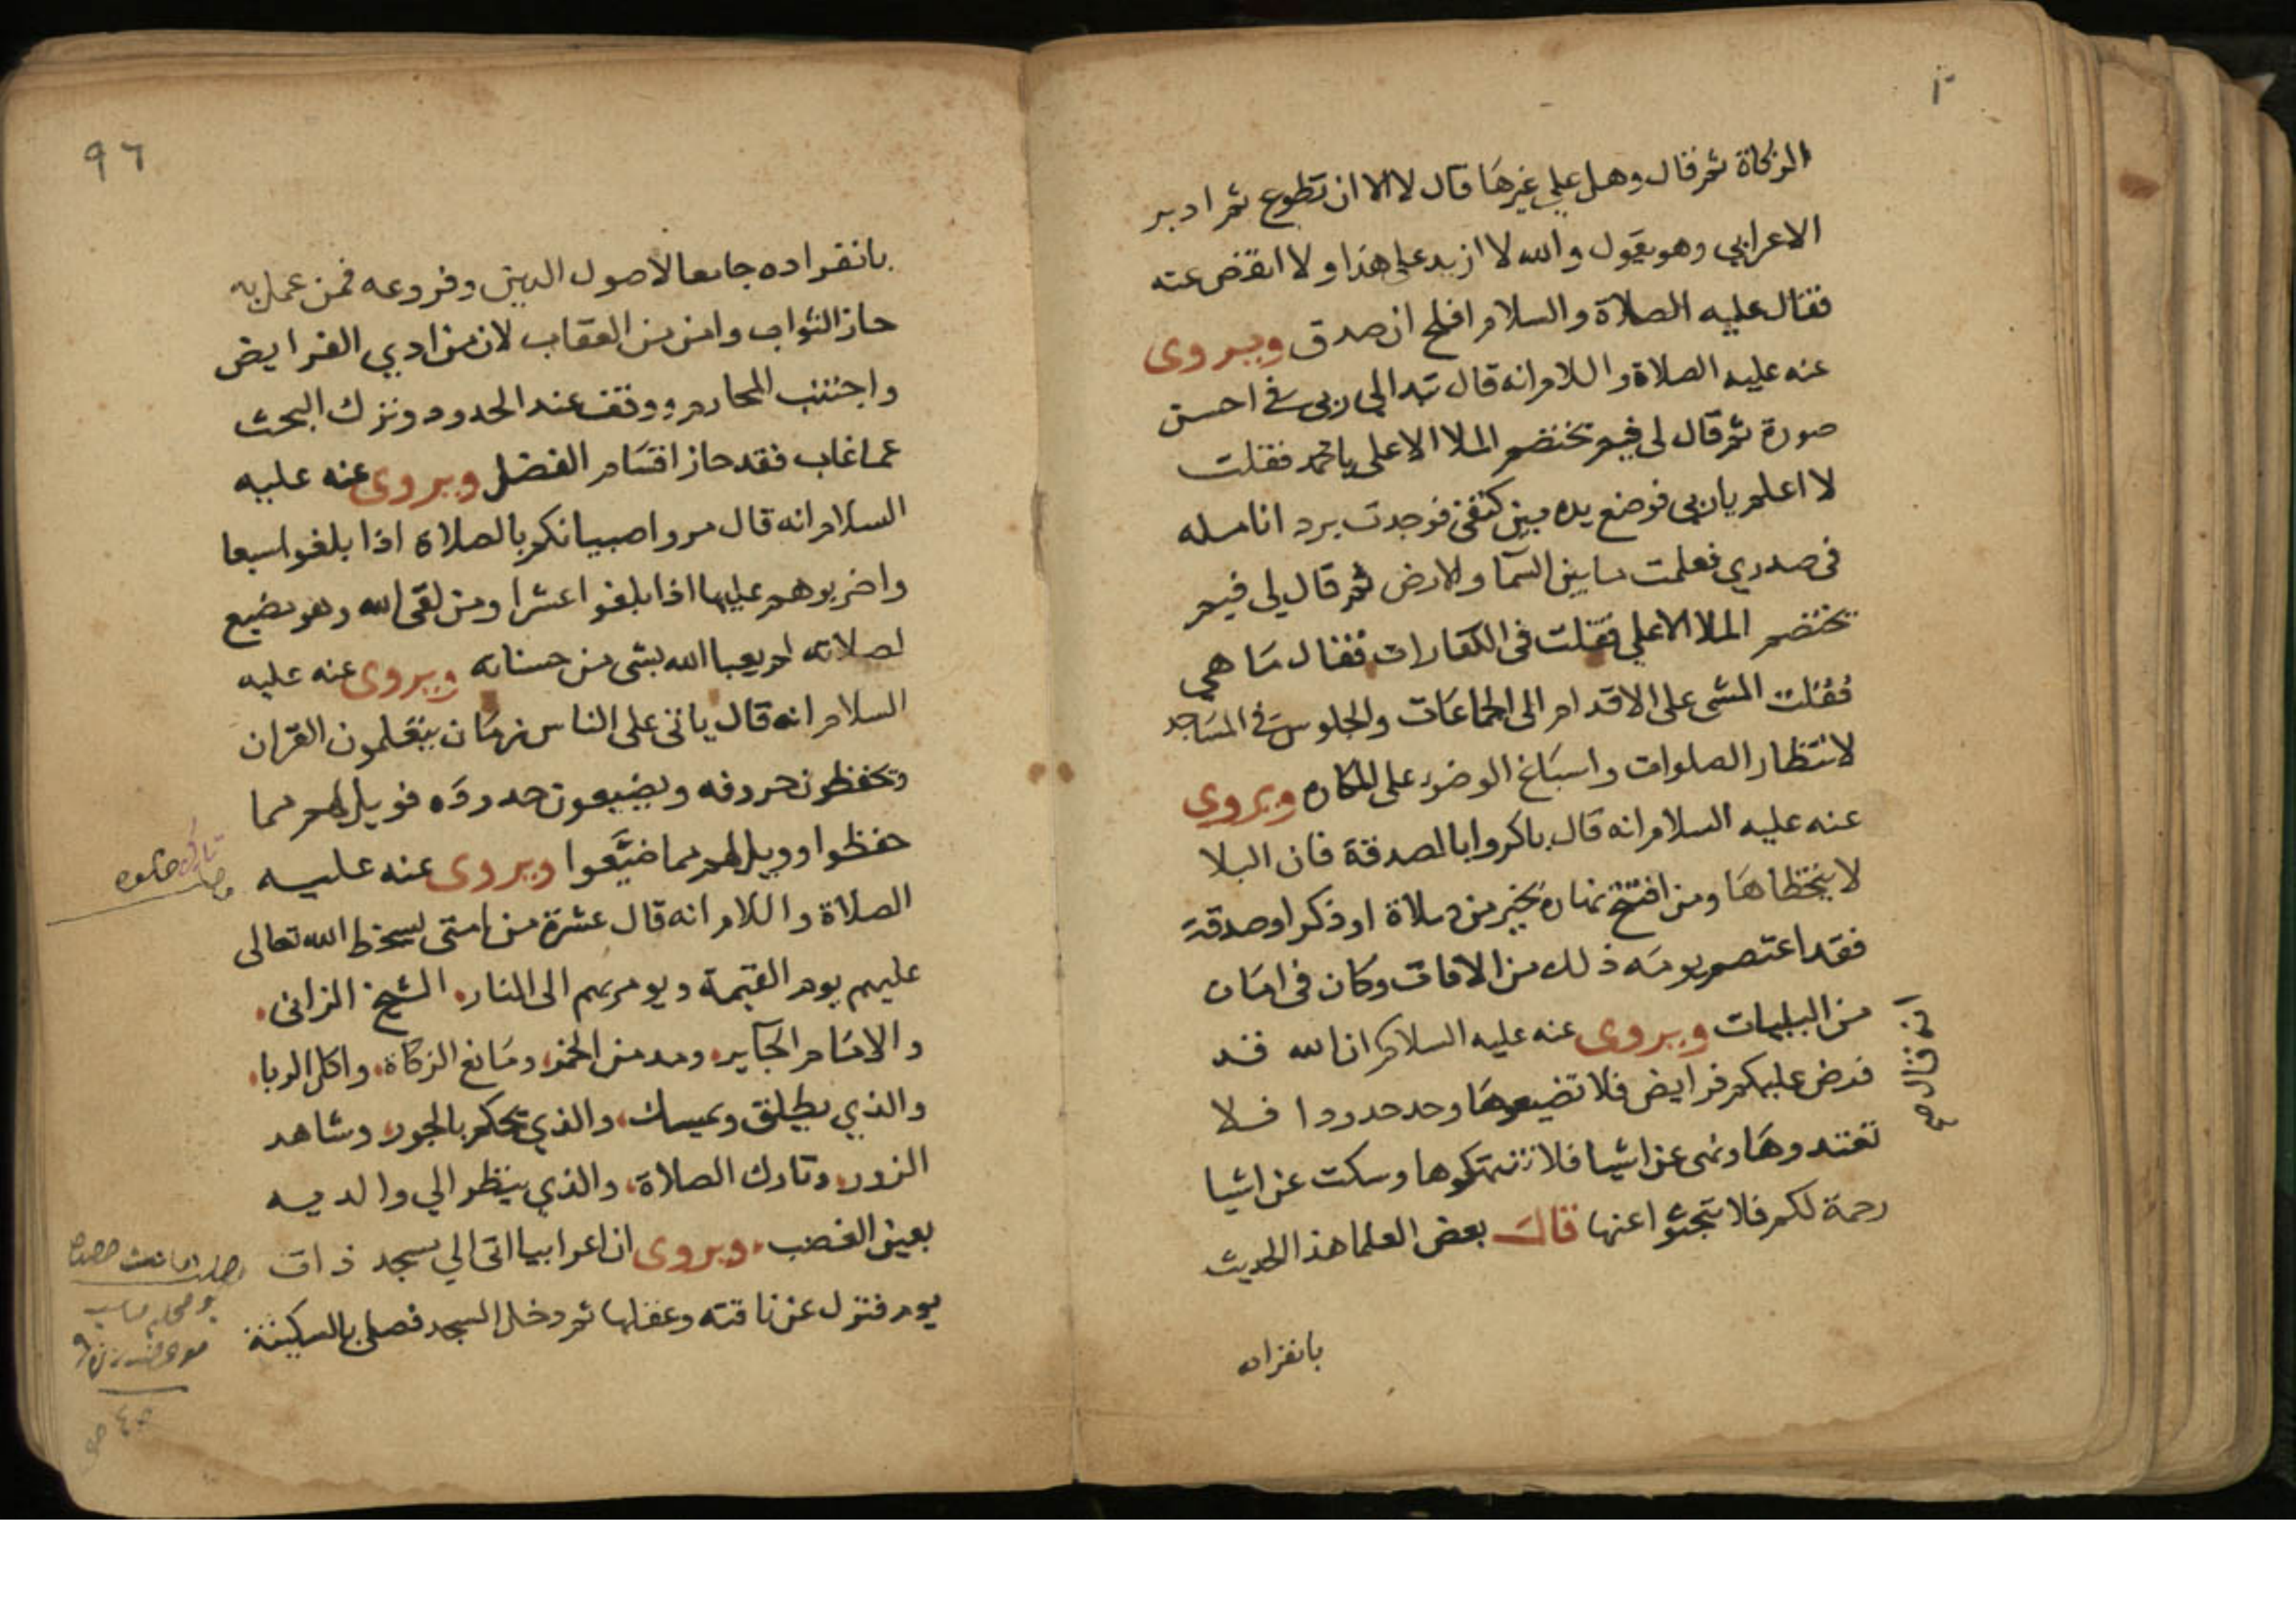 الزكاة ثم قال وهل علي غيرها قال لا الا ان تطوع ثم ادبر
الاعرابي وهو يقول والله لا ازيد علي هذا ولا انقص عنه
فقال عليه الصلاة والسلام افلح ان صدق ويروى
عنه عليه الصلاة والسلام انه قال تبدا لي ربي في احسن
صورة ثم قال لي فيم تختصم الملا الاعلى يا محمد فقلت
لا اعلم يا ربي فوضع يده بين كتفي فوجدت برد انامله
في صدري فعلمت ما بين السما والارض ثم قال لي فيم
تختصم الملا الاعلي فقلت في الكفارات فقال ما هي
فقلت المشي على الاقدام الى الجماعات والجلوس في المساجد
لانتظار الصلوات واسباغ الوضوء على المكاره ويروى
عنه عليه السلام انه قال باكروا بالصدقة فان البلا
لا يتخطاها ومن افتتح نهاره بخير من صلاة او ذكر او صدقة
فقد اعتصم يومه ذلك من الافات وكان في امان
من البليات ويروى عنه عليه السلام ان الله قد
فرض عليكم فرايض فلا تضيعوها وحد حدودا فلا
تعتدوها ونهى عن اشيا فلا تنتهكوها وسكت عن اشيا
رحمة لكم فلا تبحثوا عنها قال بعض العلما هذا الحديث
انه قال صح
بانفراده
٩٦
بانفراده جامعا لاصول الدين وفروعه فمن عمل به
حاز الثواب وامن من العقاب لان من ادي الفرايض
واجتنب المحارم ووقف عند الحدود وترك البحث
عما غاب فقد حاز اقسام الفضل ويروى عنه عليه
السلام انه قال مروا صبيانكم بالصلاة اذا بلغوا سبعا
واضربوهم عليها اذا بلغوا عشرا ومن لقى الله وهو مضيع
لصلاته لم يعبا الله بشى من حسناته ويروى عنه عليه
السلام انه قال ياتى على الناس زمان يتعلمون القران
وتحفظون حروفه ويضيعون حدوده فويل لهم مما
حفظوا وويل لهم مما ضيَّعوا ويروى عنه عليه
الصلاة والسلام انه قال عشرة من امتى يسخط الله تعالى
عليهم يوم القيمة ويومر بهم الى النار. الشيخ الزانى.
والامام الجاير. ومدمن الخمر، ومانع الزكاة، واكل الربا.
والذي يطلق ويمسك، والذي يحكم بالجور، وشاهد
الزور. وتارك الصلاة، والذي ينظر الي والديه
بعين الغضب. ويروى ان اعرابيا اتى الي مسجد ذات
يوم فنزل عن ناقته وعقلها ثم دخل المسجد فصلى بالسكينة